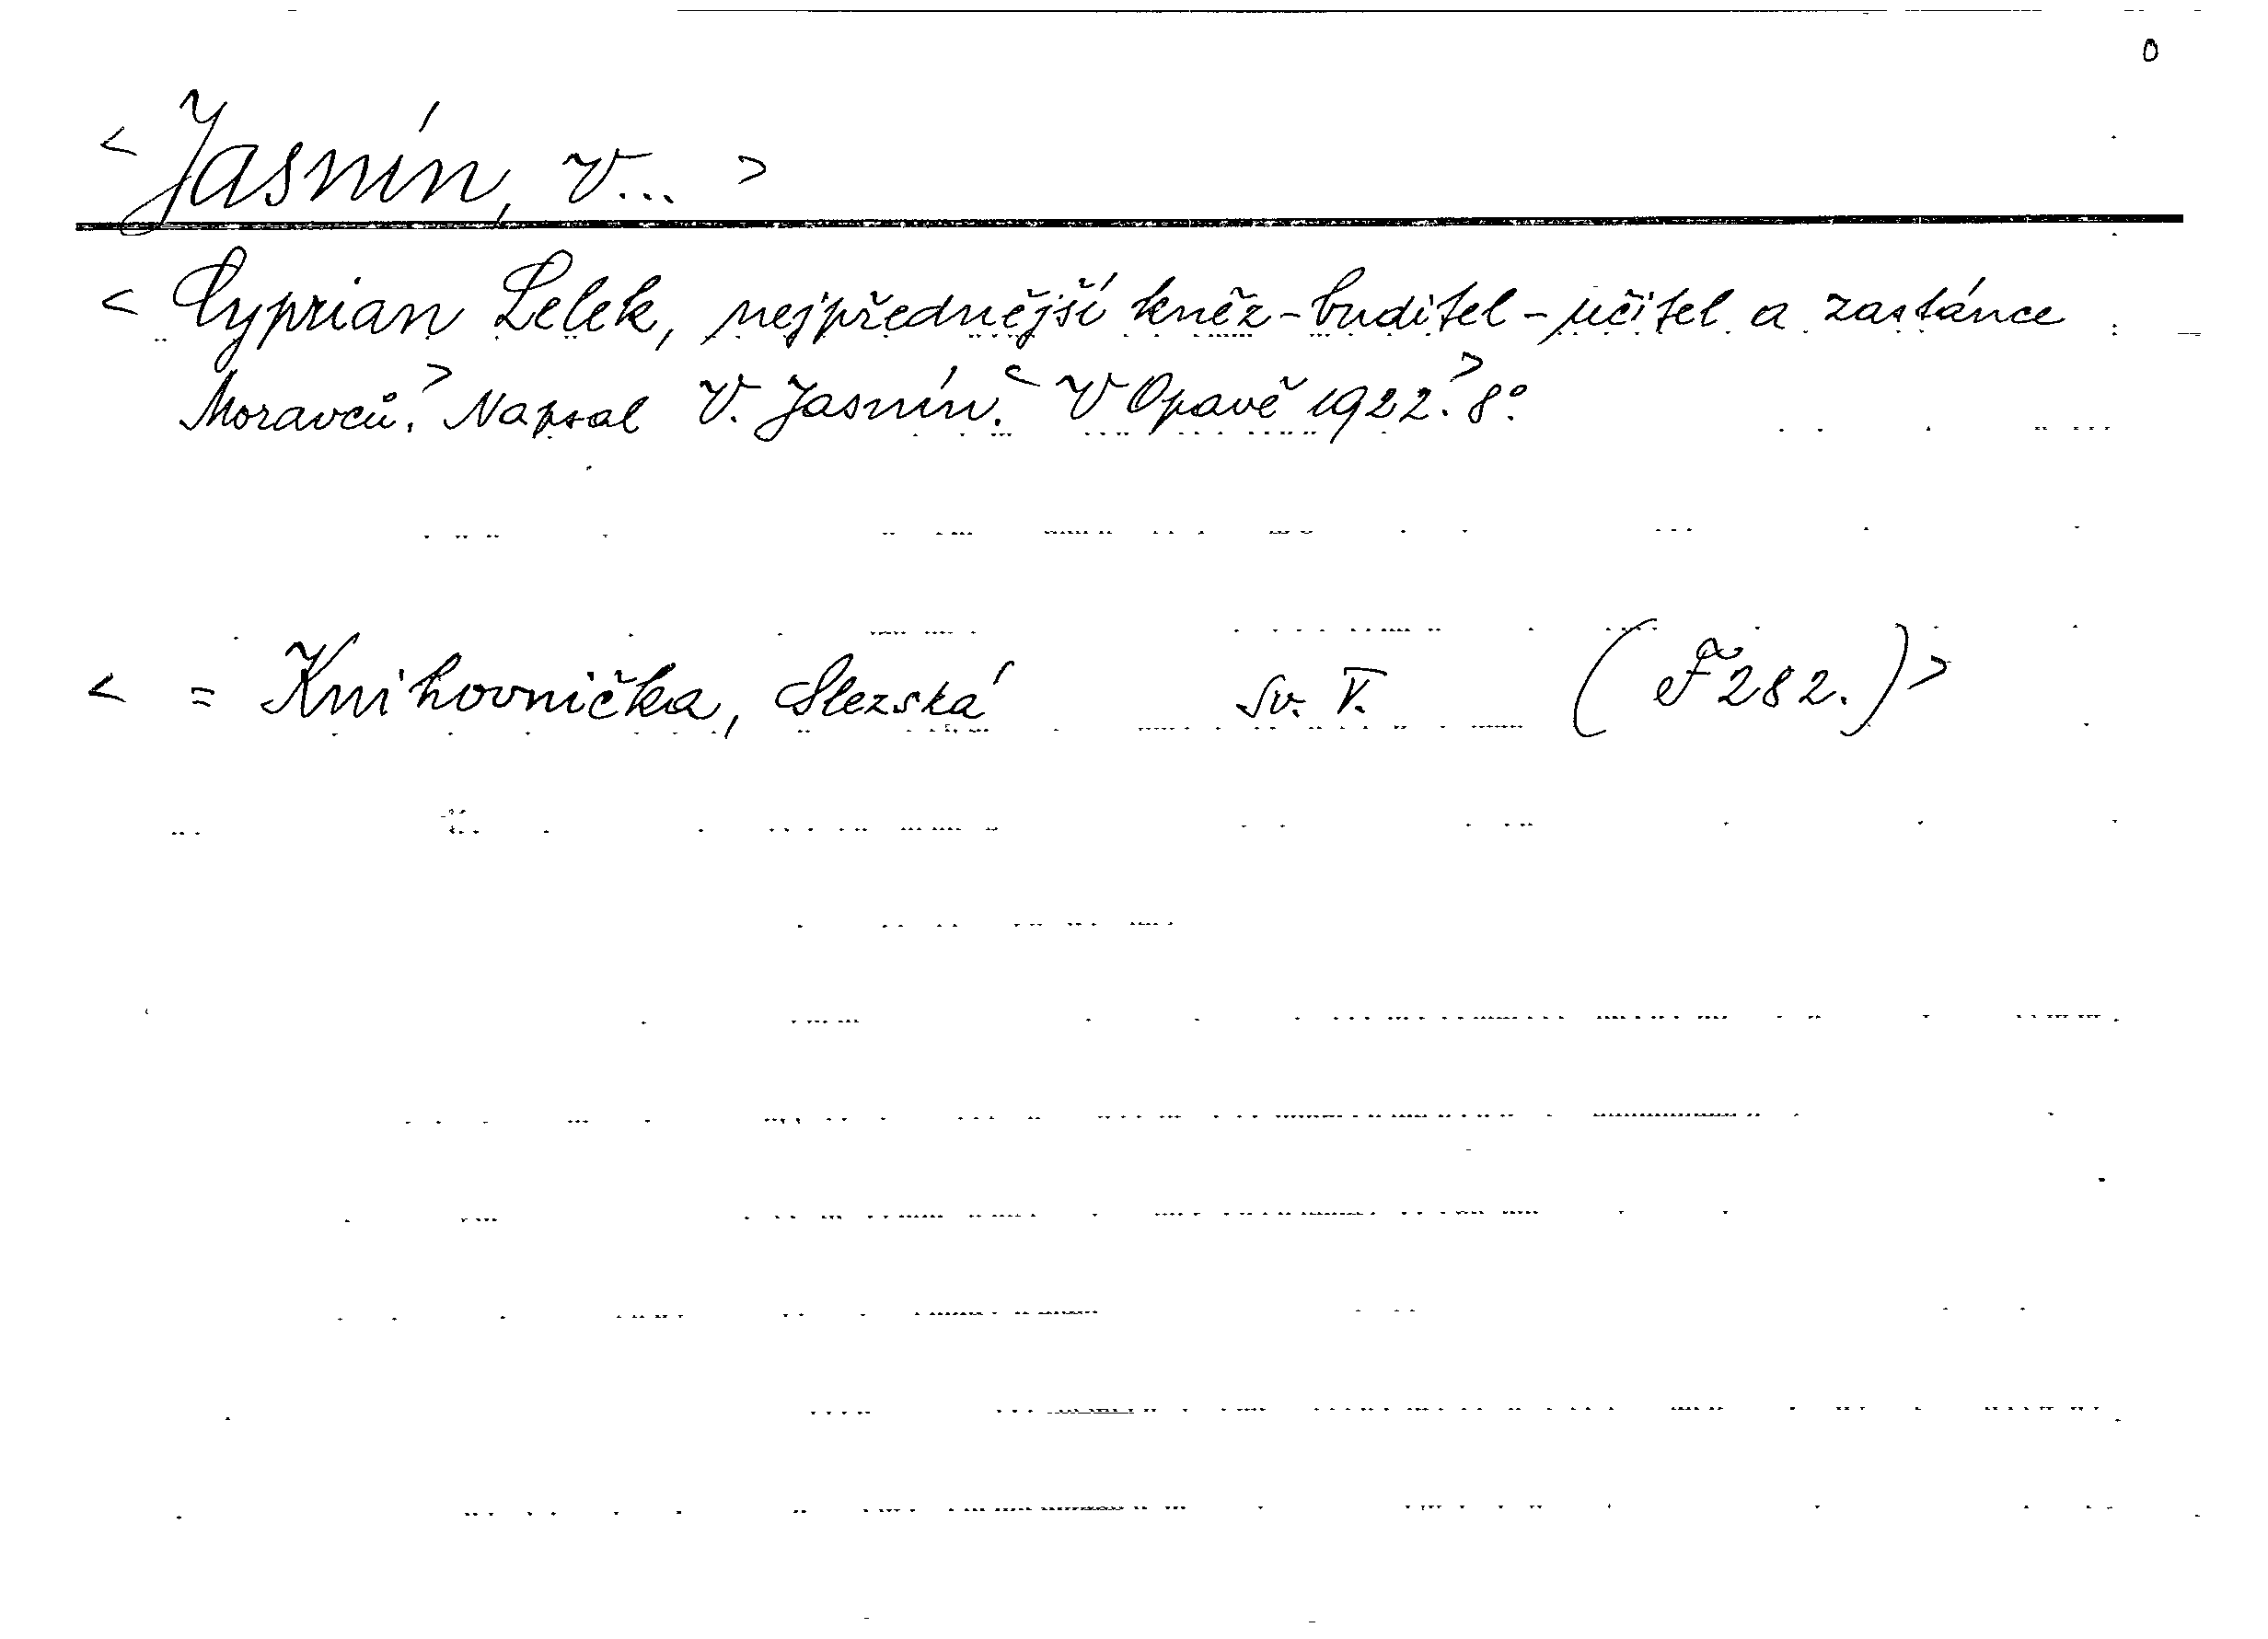 0
< Jasnín, V... >
< Cyprian Lelek, nejpřednější kněz-buditel-učitel a zastánce
Moravců.> Napsal V. Jasnín.< V Opavě 1922.> 8°.
< = Knihovnička, Slezská sv. V. (F 282.) >